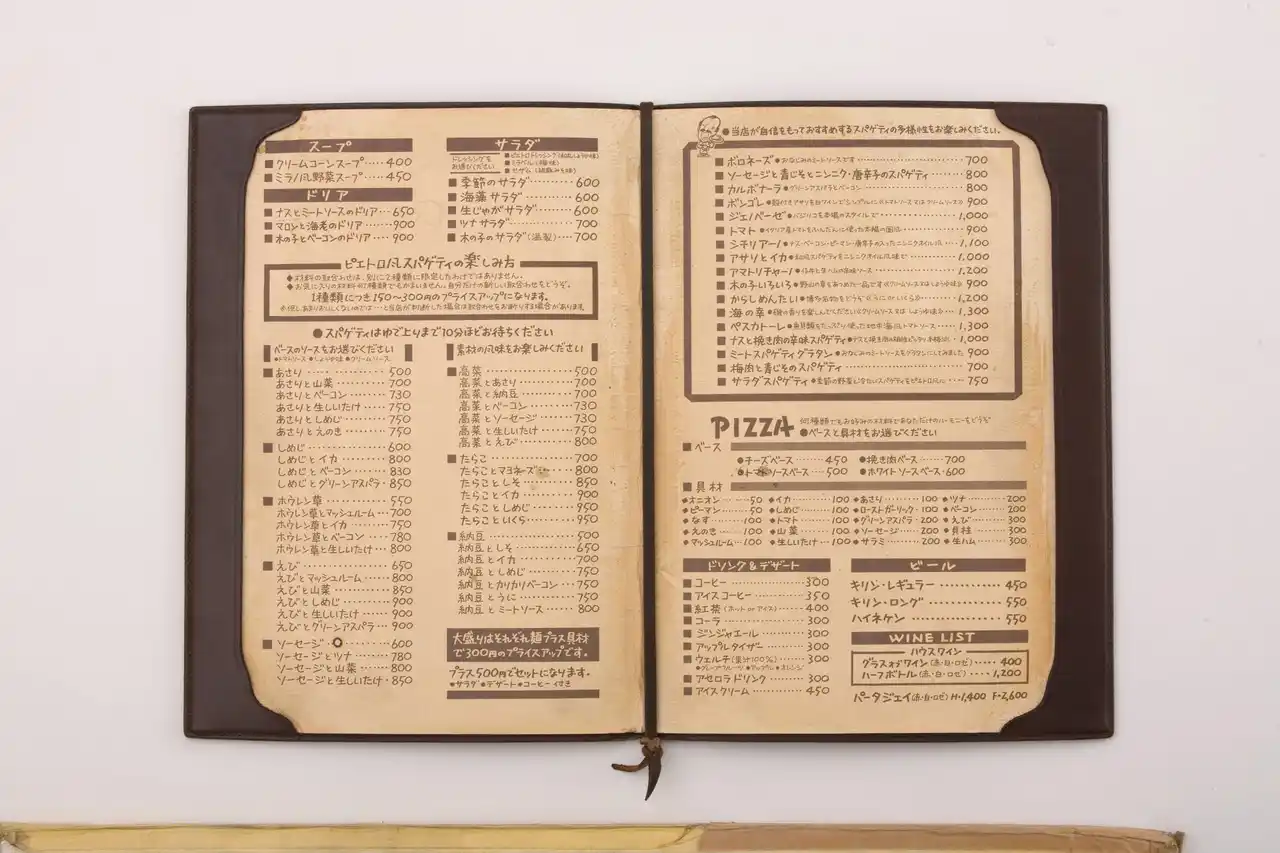 スープ
■クリームコーンスープ‥‥400
■ミラノ風野菜スープ‥‥450
ドリア
■ナスとミートソースのドリア‥650
■マロンと海老のドリア‥‥900
■木の子とベーコンのドリア‥900
サラダ
ドレッシングを
お選びください
■季節のサラダ‥‥‥600
■海藻サラダ‥‥‥600
■生じゃがサラダ‥‥‥600
■ツナサラダ‥‥‥700
■木の子のサラダ(温製)‥‥700
ピエトロ風スパゲティの楽しみ方
◆材料の取合わせは、別に2種類に限定したわけではありません。
◆お気に入りの材料何種類でもかまいません。自分だけの新しい取合わせをどうぞ。
1種類につき150〜300円のプライスアップになります。
●スパゲティはゆで上りまで10分ほどお待ちください
ベースのソースをお選びください
●トマトソース●しょうゆ味●クリームソース
■あさり‥‥‥500
あさりと山菜‥‥‥700
あさりとベーコン‥‥730
あさりと生しいたけ‥‥750
あさりとしめじ‥‥750
あさりとえのき‥‥750
■しめじ‥‥‥600
しめじとイカ‥‥‥800
しめじとベーコン‥‥830
しめじとグリーンアスパラ・850
■ホウレン草‥‥‥550
ホウレン草とマッシュルーム‥‥700
ホウレン草とイカ‥‥750
ホウレン草とベーコン‥‥780
ホウレン草と生しいたけ‥‥800
■えび‥‥‥650
えびとマッシュルーム‥‥800
えびと山菜‥‥‥850
えびとしめじ‥‥‥900
えびと生しいたけ‥‥900
えびとグリーンアスパラ‥‥900
■ソーセージ‥‥‥600
ソーセージとツナ‥‥780
ソーセージと山菜‥‥800
ソーセージと生しいたけ・850
素材の風味をお楽しみください
■高菜‥‥‥500
高菜とあさり‥‥‥700
高菜と納豆‥‥‥700
高菜とベーコン‥‥730
高菜とソーセージ‥‥730
高菜と生しいたけ‥‥750
高菜とえび‥‥‥800
■たらこ‥‥‥700
たらことマヨネーズ‥‥800
たらことしそ‥‥‥850
たらことイカ‥‥‥900
たらことしめじ‥‥‥950
たらこといくら‥‥‥950
■納豆‥‥‥500
納豆としそ‥‥‥650
納豆とイカ‥‥‥700
納豆としめじ‥‥‥750
納豆とカリカリベーコン‥‥750
納豆とうに‥‥‥750
納豆とミートソース‥‥800
大盛りはそれぞれ麺プラス具材
で300円のプライスアップです。
プラス500円でセットになります。
●サラダ●デザート●コーヒー付き
●当店が自信をもっておすすめするスパゲティの多様性をお楽しみください。
■ボロネーズ●おなじみのミートソースです‥‥700
■ソーセージと青じそとニンニク・唐辛子のスパゲティ‥‥800
■カルボナーラ●グリーンアスパラとベーコン‥‥800
■ボンゴレ 900
■ジェノベーゼ●バジリコを本場のスタイルで‥‥1,000
■トマト 900
■シチリアーノ●ナス・ベーコン・ピーマン・唐辛子の入ったニンニクオイル味‥1,100
■アサリとイカ●和風スパゲティをニンニクオイル風味で‥‥1,000
■アマトリチャーノ 1,200
■木の子いろいろ 900
■からしめんたい 1,200
■海の幸 1,300
■ペスカトーレ 1,300
■ナスと挽き肉の辛味スパゲティ 1,000
■ミートスパゲティグラタン●おなじみのミートソースをグラタンにしてみました 900
■梅肉と青じそのスパゲティ‥‥700
■サラダスパゲティ 750
PIZZA
何種類でもお好みの材料であなただけのハーモニーをどうぞ
●ベースと具材をお選びください
■ベース
●チーズベース‥‥450 ●挽き肉ベース‥‥700
●トマトソースベース‥‥500 ●ホワイトソースベース・600
■具材
◆オニオン‥‥50 ◆イカ‥‥100 ◆あさり‥‥100 ◆ツナ‥‥200
◆ピーマン‥‥50 ◆しめじ‥‥100 ◆ローストガーリック・100 ◆ベーコン‥‥200
◆なす‥‥100 ◆トマト‥‥100 ◆グリーンアスパラ・200 ◆えび‥‥300
◆えのき‥‥100 ◆山菜‥‥100 ◆ソーセージ‥‥200 ◆貝柱‥‥300
◆マッシュルーム‥100 ◆生しいたけ‥‥100 ◆サラミ‥‥200 ◆生ハム‥‥300
ドリンク&デザート
■コーヒー‥‥‥300
■アイスコーヒー‥‥‥350
■紅茶(ホット or アイス)‥‥400
■コーラ‥‥‥300
■ジンジャエール‥‥‥300
■アップルタイザー‥‥300
■ウェルチ(果汁100%)‥‥300
■アセロラドリンク‥‥300
■アイスクリーム‥‥‥450
ビール
キリン・レギュラー‥‥‥450
キリン・ロング‥‥‥550
ハイネケン‥‥‥550
WINE LIST
ハウスワイン
グラスワイン(赤・白・ロゼ)‥‥400
ハーフボトル(赤・白・ロゼ)‥‥1,200
パータジェイ(赤・白・ロゼ) H・1,400 F・2,600